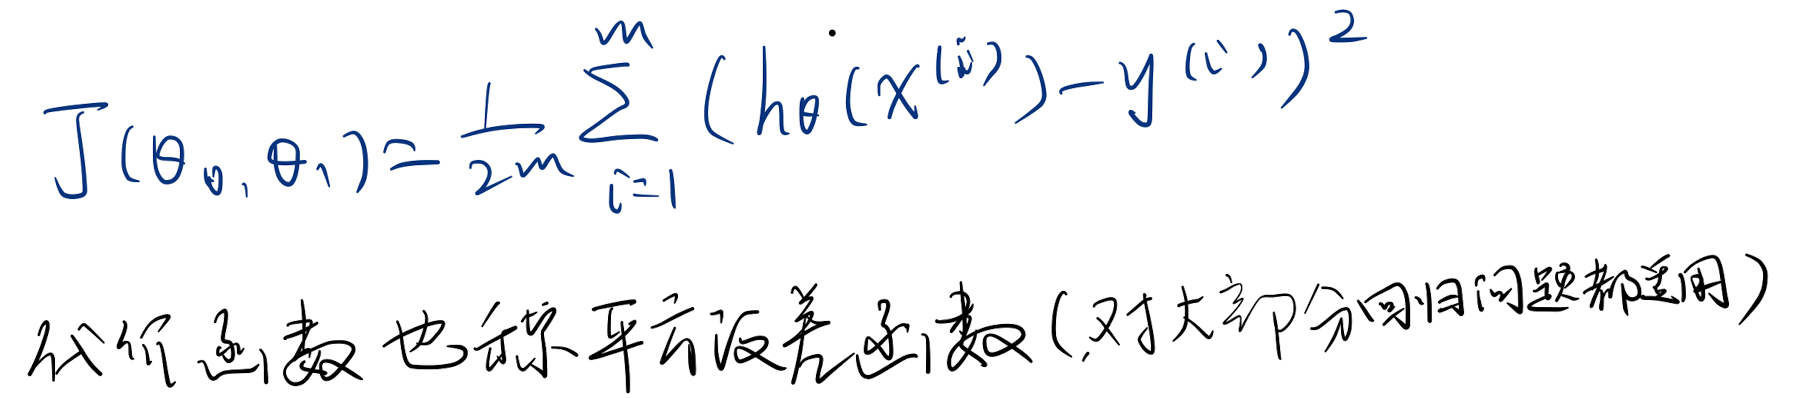 J(θ₀, θ₁) = \frac{1}{2m} \sum_{i=1}^{m} (hθ(x^{(i)}) - y^{(i)})^2
代价函数也称平方误差函数(对大部分回归问题都适用)